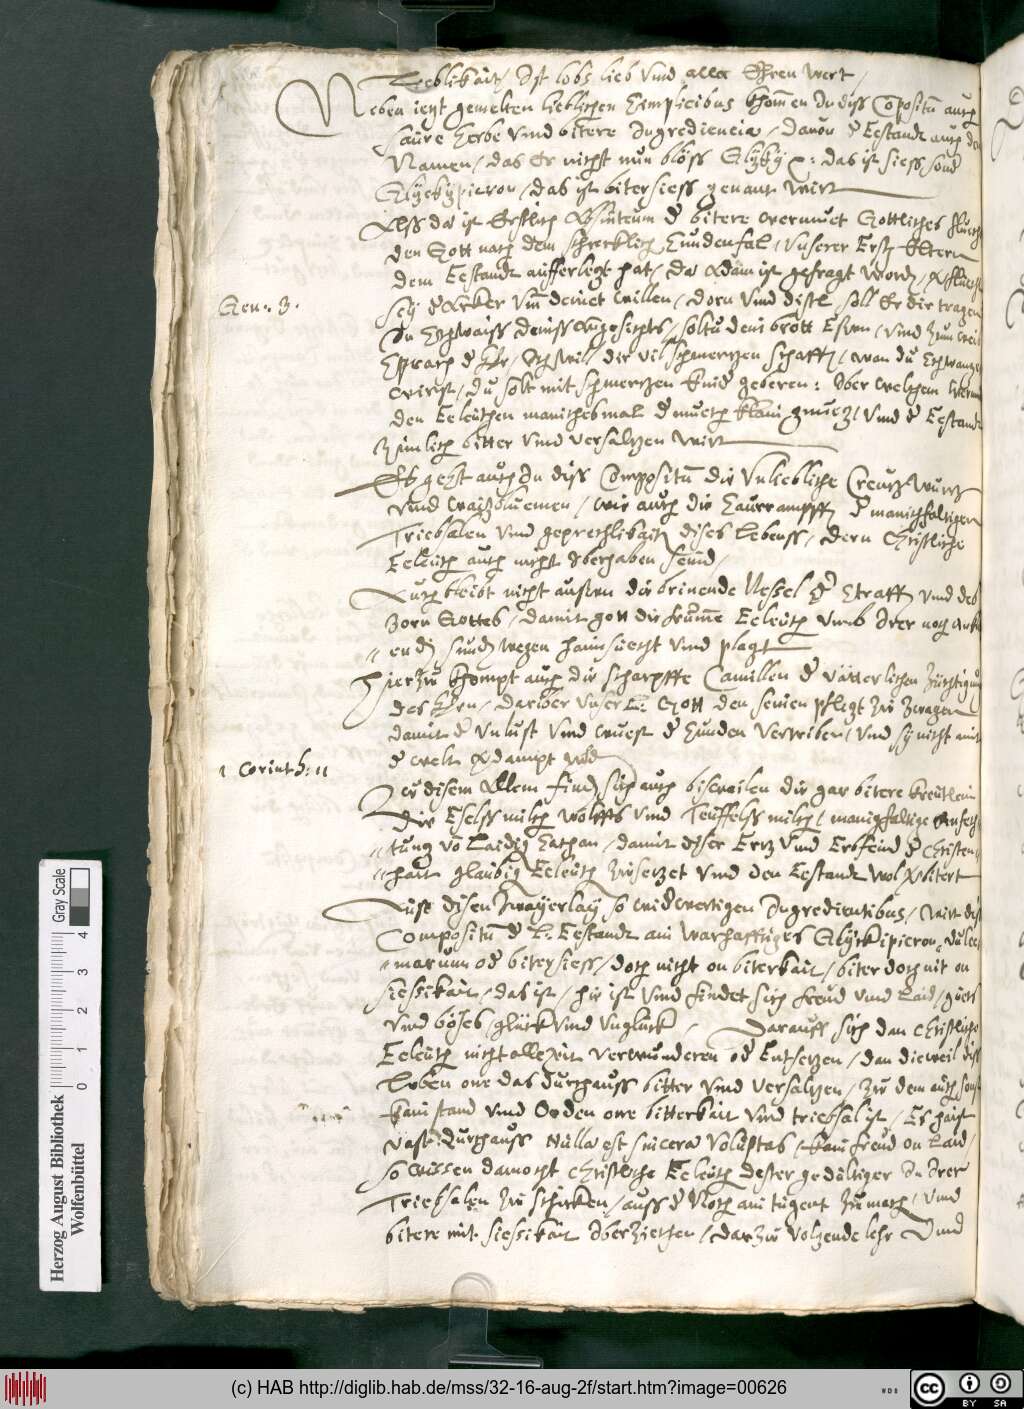 Lieblikait, Ist lobs lieb vnd aller Ehren wert,
Neben ietzt gemelten lieblichen Simplicibus khomen In diss Compositu auch
saure herbe vnnd bittere Ingredientia, dauon d Eestandt auch den
Namen, das Er nicht nun blöss Glycky: das ist siess sond
Glyckypicron, das ist bitersiess genant wirt
Alss da ist Erstlich Absinteum d bitere wermuet Göttliches fluech
den Gott nach dem schrecklich Sundenfal, vnserer Erst Eltern
dem Eestandt aufferlegt hat, da Adam ist gefragt word,
Gen: 3.
sey d Acker vm deinet willen, dorn vnd distl, soll Er dir tragen
Im Schwaiss deins Angesichts, soltu dein brott Essen, vnd zum weib
Sprach d Her, Ich will dir vil schmertzen schaffn, wan du Schwanger
wirst, du solt mit schmertzen kind geberen: Iber welchem
den Eeleuthen manichesmal d mueth klain gnueg, vnd d Eestandt
Zimlich bitter vnd versaltzen wirt
Es gehst auch In diss Compositu die vnliebliche Creutz Wurtz
vnnd waitzbluemen, wie auch die Saurrampff d manichfaltigen
Triebsalen vnd geprechlikait dises Lebenss, dern Christliche
Eeleuth auch nicht Iberhaben seind,
Auch bleibt nicht aussen die brinende Nessel d Straff vnnd des
Zorn Gottes, damit gott die frume Eeleuth vmb Irer noch ankl
enden sünd wegen haimsuecht vnnd plagt
Hierzu khompt auch die scharpffe Camillen d vätterlichen Züchtigung
des Hern, dariber vnser L: Gott den seinen pflegt zu zwagen
damit d vnlust vnd wuest d Sunden vertriben, vnd sy nicht mit
d welt verdampt werd
1 Corinth: 11
Zu disem Allem find sich auch bisweilen die gar bitere kreutlein
Die Eselssmilch Wolffs vnd Teuffelssmilch, manigfaltige Anfech
tung vo Laidig Sathan, damit diser Ertz vnd Erbfeind d Christen
hait glaubig Eeleuth zusetzet vnd den Eestandt wol verbitert
Auss disen Zwayerlay so widwertigen Ingredientibus, wirt diss
Compositu d L: Eestandt ain warhafftiges Glyckipicron, dulce
marum od bitersiess, doch nicht on biterkait, biter doch nit on
siessikait, das ist, hie ist vnd findet sich freud vnd Laid, guets
vnd böses, glück vnd vnglück, Darauff sich dan Christliche
Eeleuth nicht allezeit verwunderen od Entsetzen, dan dieweil diss
Leben one das durchauss bitter vnd versaltzen, zu dem auch sonst
kain stand vnd Orden one bitterkait vnd triebsal ist, Es haist
vast durchauss Nulla est sincera voluptas, kain freud on Laid,
so wissen damocht Christliche Eeleuth dester gedultiger In Irer
Triebsalen zu schicken, auss d Noth ain tugent zu mach, vnd
bitere mit siessikait Iberziechen, darzu volgende lehr Vnnd
Herzog August Bibliothek
Wolfenbüttel
0 1 2 3 4
Gray Scale
(c) HAB http://diglib.hab.de/mss/32-16-aug-2f/start.htm?image=00626
WDB
cc BY SA